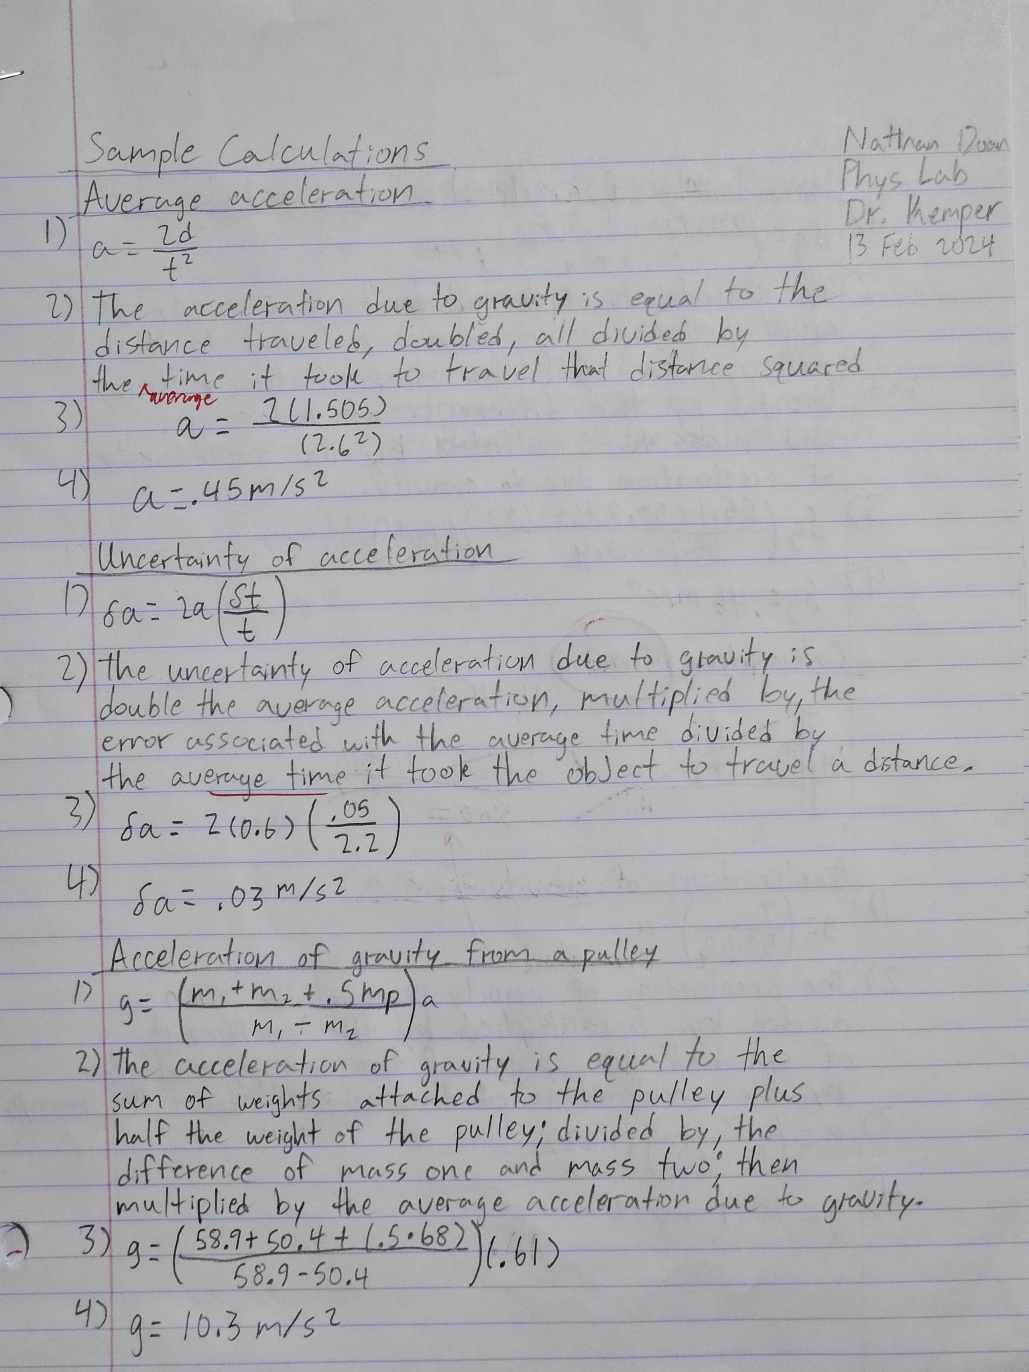 Sample Calculations
Nathan Doan
Phys Lab
Dr. Kemper
13 Feb 2024
Average acceleration
1) a = 2d / t²
2) The acceleration due to gravity is equal to the
distance traveled, doubled, all divided by
the ^average time it took to travel that distance squared
3) a = 2(1.505) / (2.6²)
4) a = .45 m/s²
Uncertainty of acceleration
1) δa = 2a (δt / t)
2) The uncertainty of acceleration due to gravity is
double the average acceleration, multiplied by, the
error associated with the average time divided by
the average time it took the object to travel a distance.
3) δa = 2(0.6) (.05 / 2.2)
4) δa = .03 m/s²
Acceleration of gravity from a pulley
1) g = (m₁ + m₂ + .5mp / m₁ - m₂) a
2) The acceleration of gravity is equal to the
sum of weights attached to the pulley plus
half the weight of the pulley; divided by, the
difference of mass one and mass two; then
multiplied by the average acceleration due to gravity.
3) g = (58.9 + 50.4 + (.5·68) / 58.9 - 50.4) (.61)
4) g = 10.3 m/s²